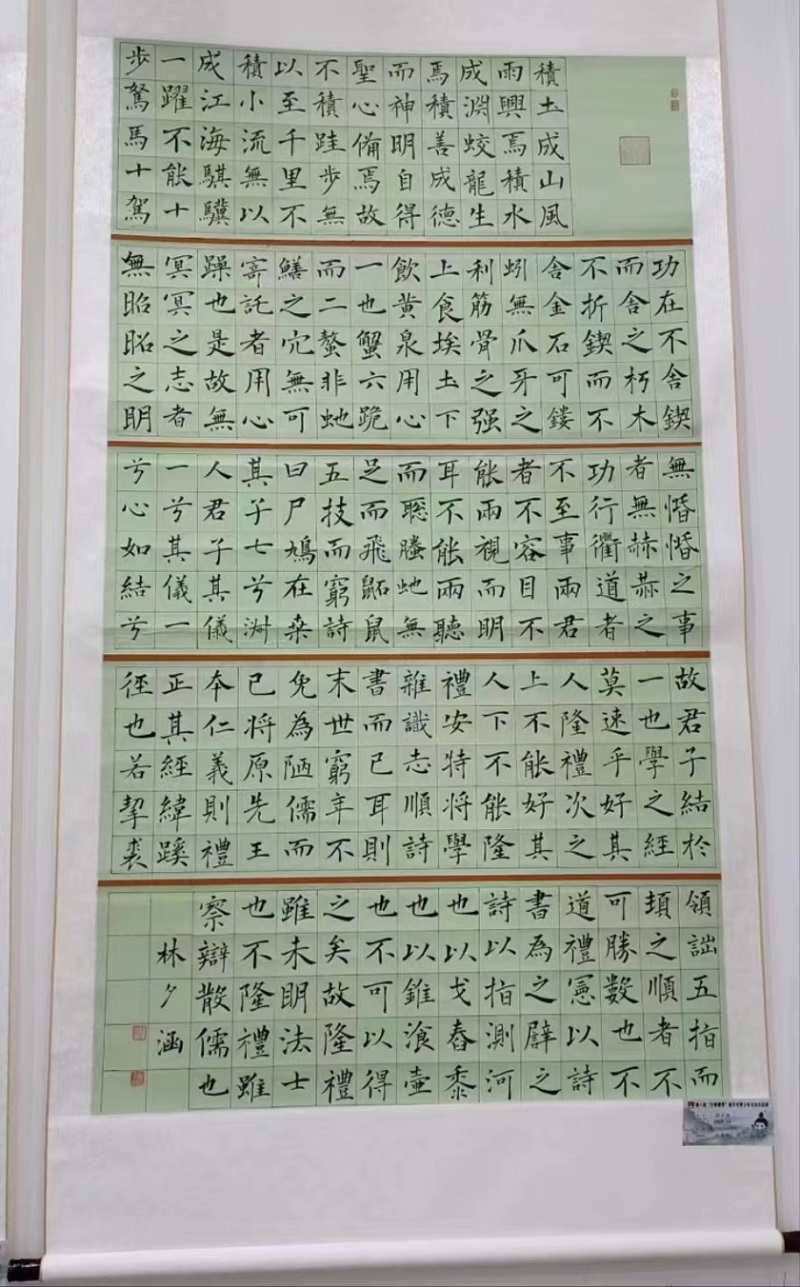 積土成山風
雨興焉積水
成淵蛟龍生
焉積善成德
而神明自得
聖心備焉故
不積跬步無
以至千里不
積小流無以
成江海騏驥
一躍不能十
步駑馬十駕
功在不舍鍥
而舍之朽木
不折鍥而不
舍金石可鏤
蚓無爪牙之
利筋骨之强
上食埃土下
飲黃泉用心
一也蟹六跪
而二螯非虵
鱔之穴無可
寄託者用心
躁也是故無
冥冥之志者
無昭昭之明
無惛惛之事
者無赫赫之
功行衢道者
不至事兩君
者不容目不
能兩視而明
耳不能兩聽
而聰螣虵無
足而飛鼫鼠
五技而窮詩
曰尸鳩在桒
其子七兮淑
人君子其儀
一兮其儀一
兮心如結兮
故君子結於
一也學之經
莫速乎好其
人隆禮次之
上不能好其
人下不能隆
禮安特將學
雜識志順詩
書而已耳則
末世窮年不
免為陋儒而
已將原先王
本仁義則禮
正其經緯蹊
徑也若挈裘
領詘五指而
頓之順者不
可勝數也不
道禮憲以詩
書為之辟之
詩以指測河
也以戈舂黍
也以錐飡壺
也不可以得
之矣故隆禮
雖未明法士
也不隆禮雖
察辯散儒也
林夕涵